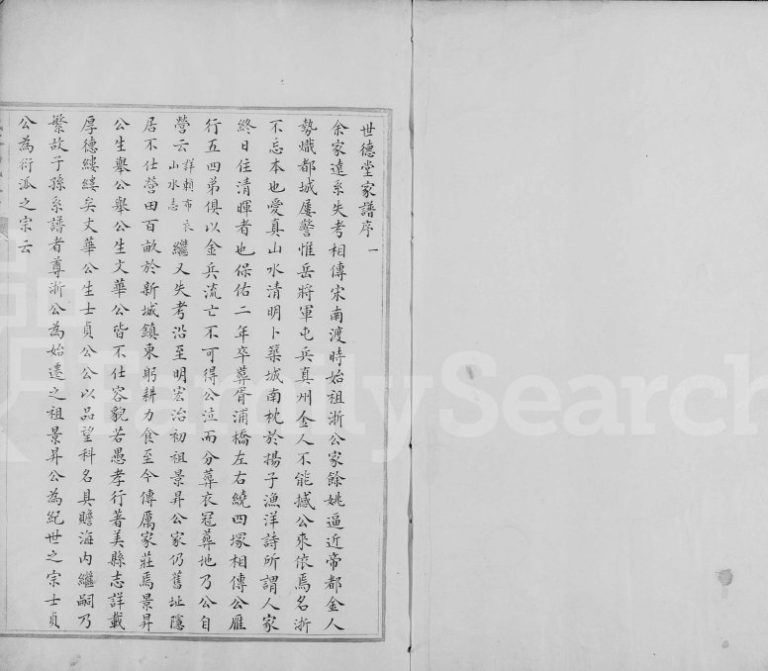 世德堂家譜序一
余家遠系失考相傳宋南渡時始祖浙公家餘姚逼近帝都金人
勢熾都城屢警惟岳將軍屯兵真州金人不能撼公來依焉名浙
不忘本也愛真山水清明卜築城南枕於揚子漁洋詩所謂人家
終日住清暉者也保佑二年卒葬胥浦橋左右繞四塚相傳公雁
行五四弟俱以金兵流亡不可得公泣而分葬衣冠葬地乃公自
營云詳賴布衣山水志繼又失考沿至明宏治初祖景昇公家仍舊址隱
居不仕營田百畝於新城鎮東躬耕力食至今傳厲家莊焉景昇
公生舉公舉公生文華公皆不仕容貌若愚孝行著美縣志詳載
厚德縷縷矣文華公生士貞公公以品望科名具瞻海內繼嗣乃
繁故子孫系譜者尊浙公為始遷之祖景昇公為紀世之宗士貞
公為衍派之宗云
FamilySearch